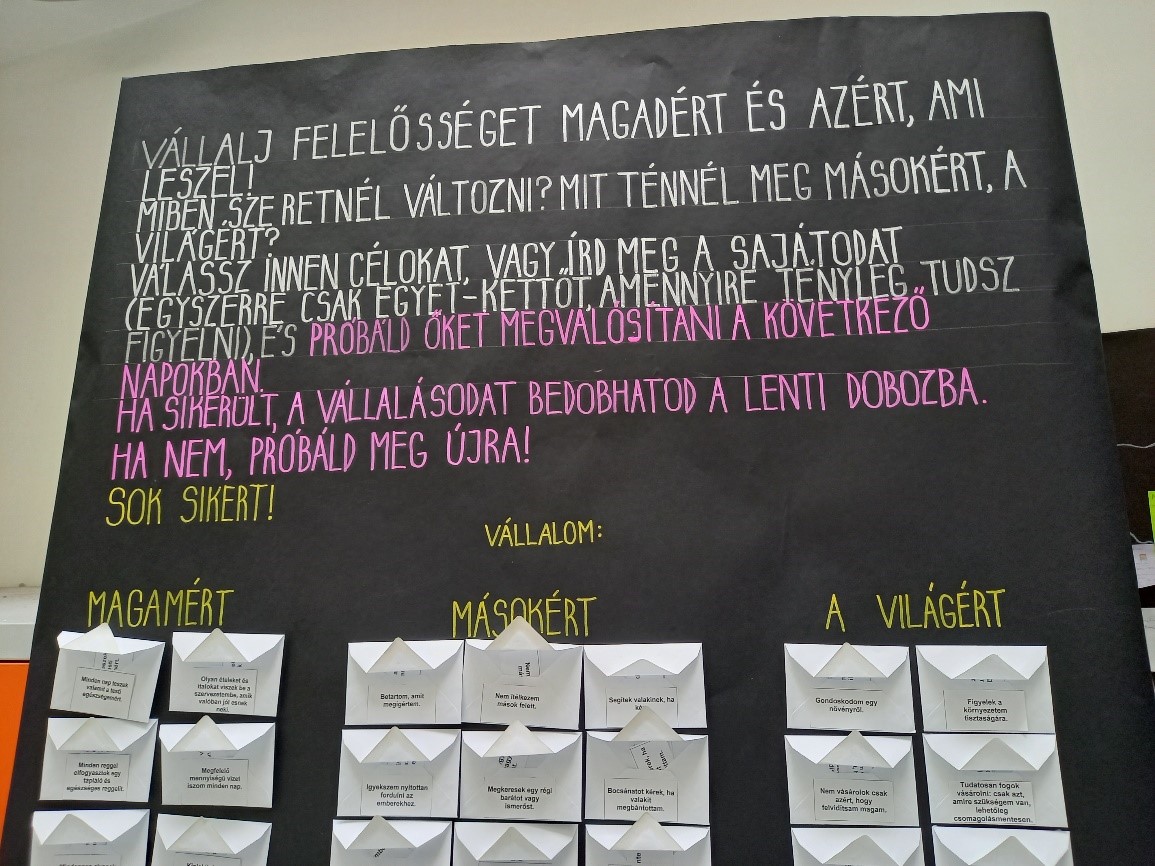 VÁLLALJ FELELŐSSÉGET MAGADÉRT ÉS AZÉRT, AMI
LESZEL!
MIBEN SZERETNÉL VÁLTOZNI? MIT TENNÉL MEG MÁSOKÉRT, A
VILÁGÉRT?
VÁLASSZ INNEN CÉLOKAT, VAGY ÍRD MEG A SAJÁTODAT
(EGYSZERRE CSAK EGYET-KETTŐT, AMENNYIRE TÉNYLEG TUDSZ
FIGYELNI), ÉS PRÓBÁLD ŐKET MEGVALÓSÍTANI A KÖVETKEZŐ
NAPOKBAN.
HA SIKERÜLT, A VÁLLALÁSODAT BEDOBHATOD A LENTI DOBOZBA.
HA NEM, PRÓBÁLD MEG ÚJRA!
SOK SIKERT!
VÁLLALOM:
MAGAMÉRT
Minden nap teszek
valamit a testi
egészségemért.
Olyan ételeket és
italokat viszek be a
szervezetembe, amik
valóban jól esnek
neki.
Minden reggel
elfogyasztok egy
tápláló és
egészséges reggelit.
Megfelelő
mennyiségű vizet
iszom minden nap.
MÁSOKÉRT
Betartom, amit
megígértem.
Nem ítélkezem
mások felett.
Segítek valakinek, ha
Igyekszem nyitottan
fordulni az
emberekhez.
Megkeresek egy régi
barátot vagy
ismerőst.
Bocsánatot kérek, ha
valakit
megbántottam.
A VILÁGÉRT
Gondoskodom egy
növényről.
Figyelek a
környezetem
tisztaságára.
Nem vásárolok csak
azért, hogy
felvidítsam magam.
Tudatosan fogok
vásárolni: csak azt,
amire szükségem van,
lehetőleg
csomagolásmentesen.